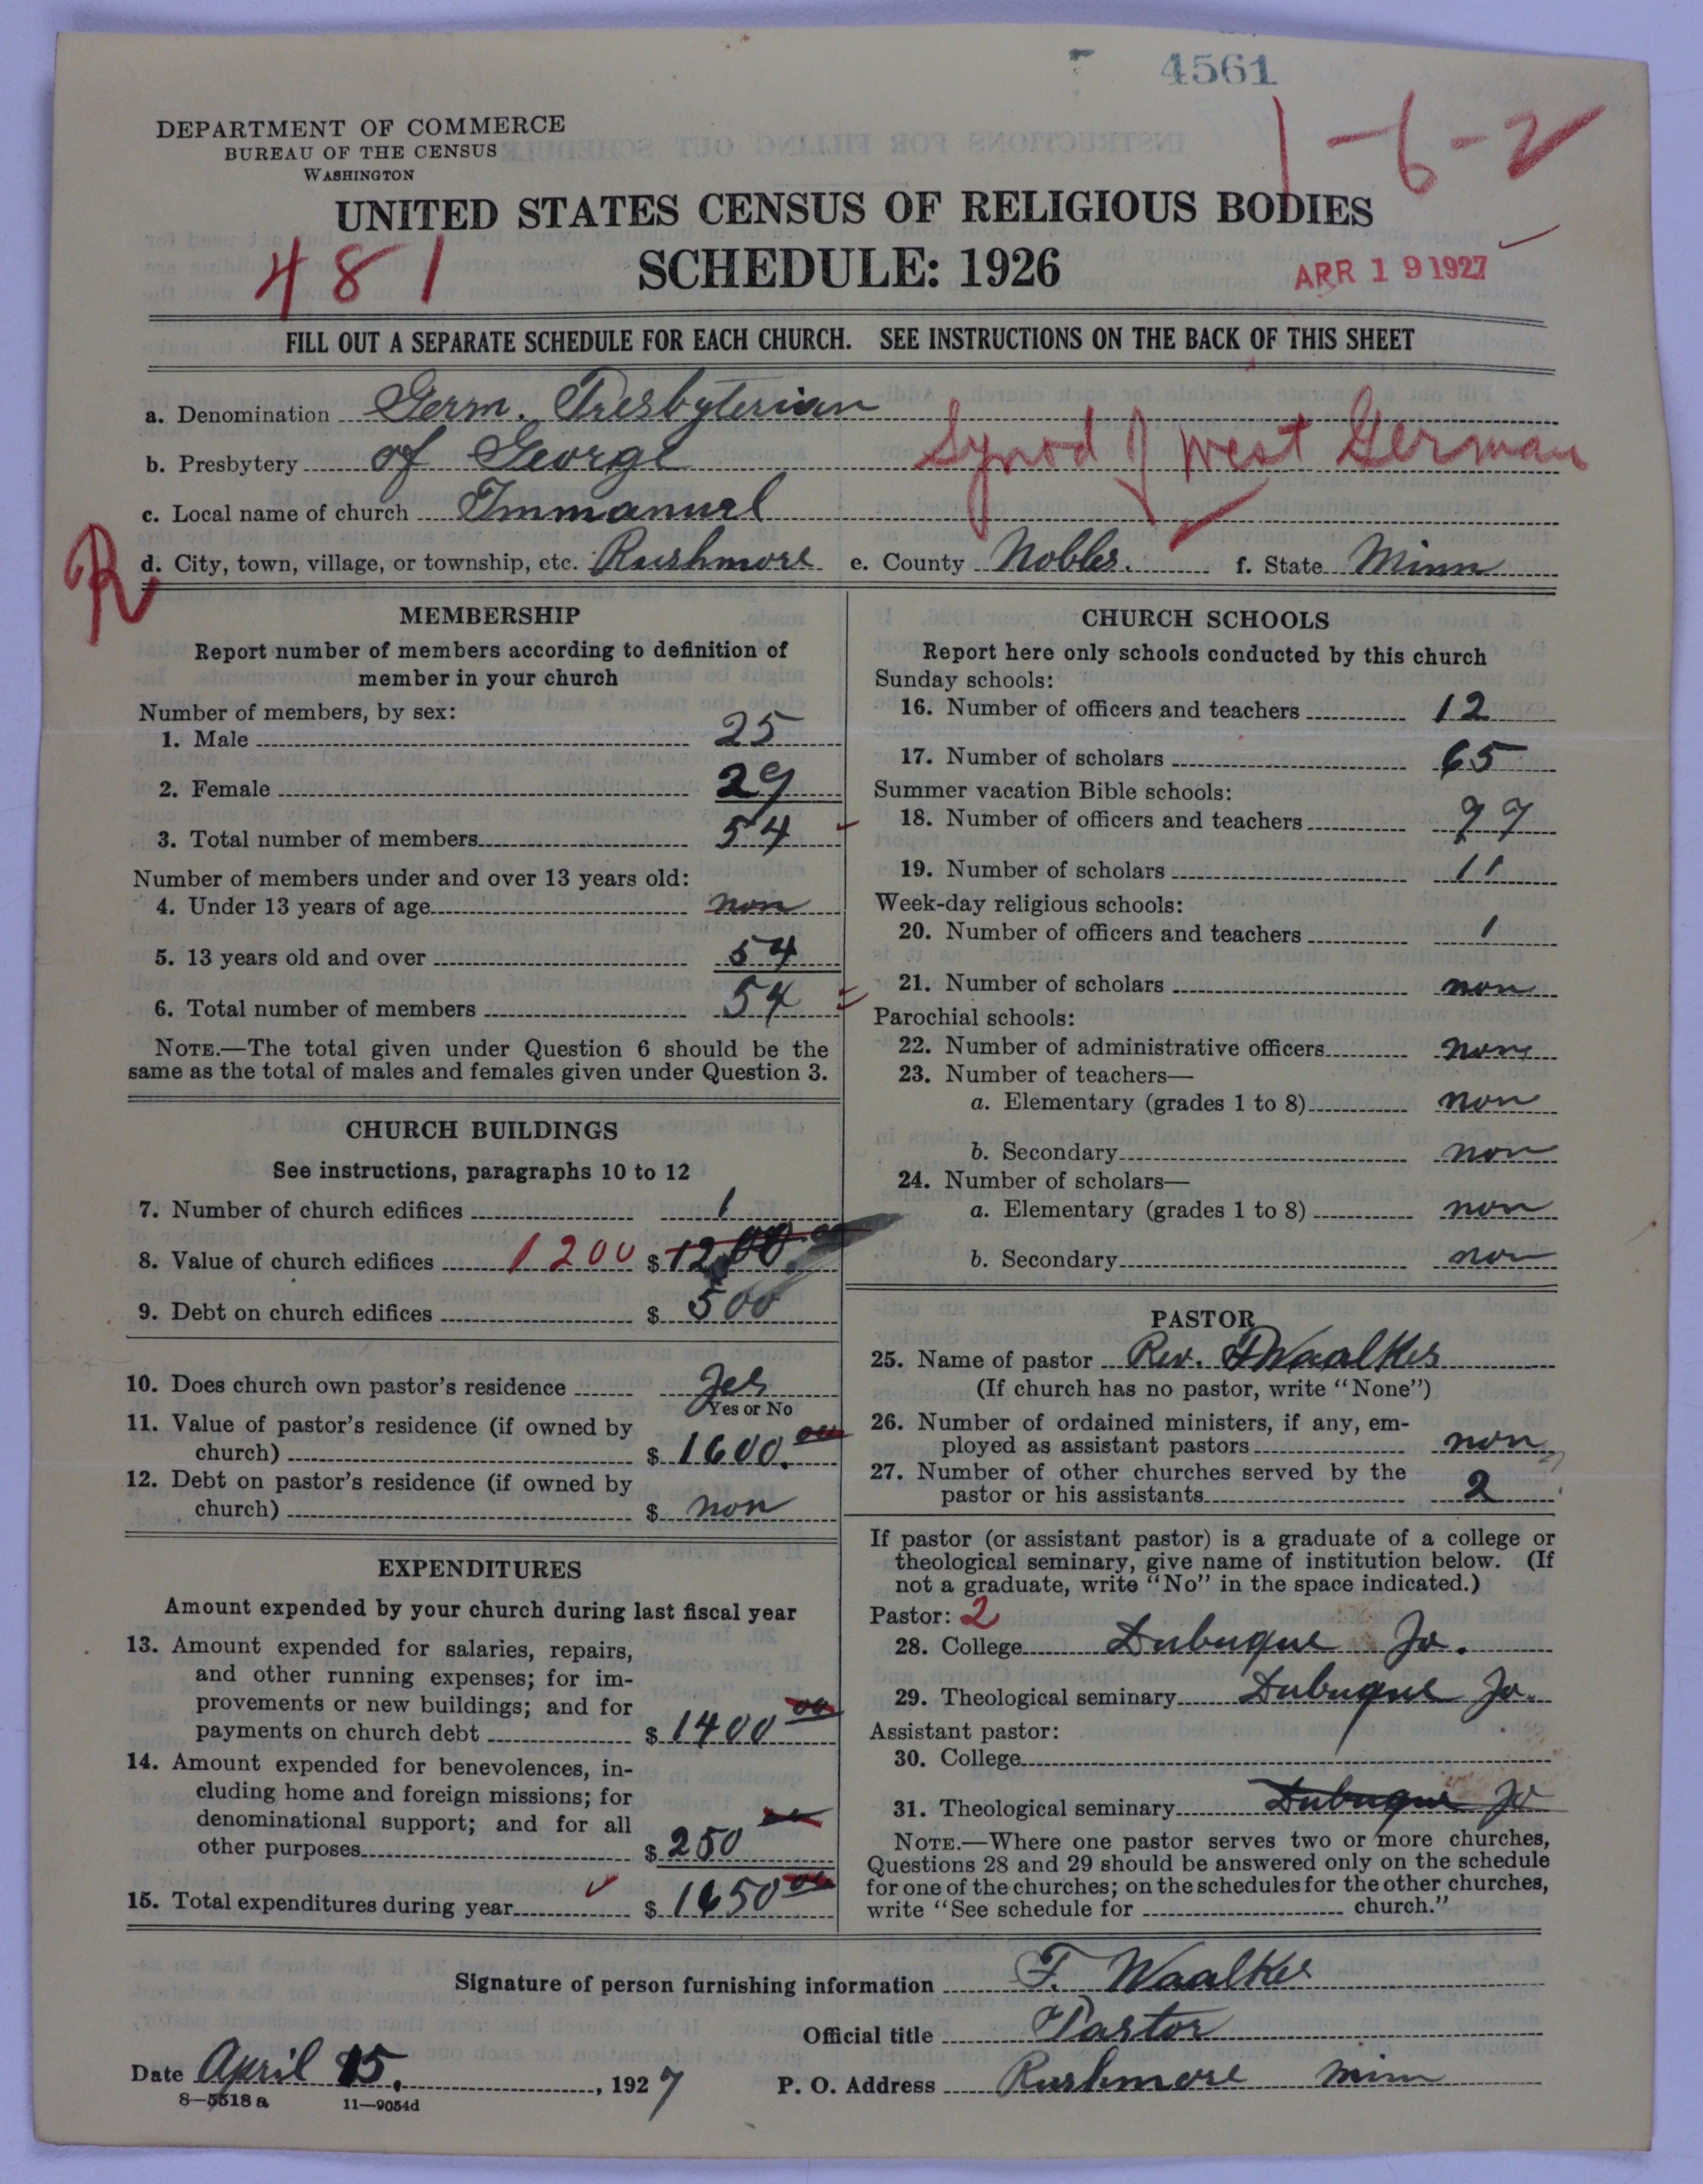 4561
DEPARTMENT OF COMMERCE
BUREAU OF THE CENSUS
WASHINGTON
1-6-2
UNITED STATES CENSUS OF RELIGIOUS BODIES
481
SCHEDULE: 1926
APR 19 1927
FILL OUT A SEPARATE SCHEDULE FOR EACH CHURCH. SEE INSTRUCTIONS ON THE BACK OF THIS SHEET
a. Denomination Germ. Presbyterian
b. Presbytery of George
Synod of West German
c. Local name of church Immanuel
R
d. City, town, village, or township, etc. Rushmore e. County Nobles. f. State Minn
MEMBERSHIP
Report number of members according to definition of
member in your church
Number of members, by sex:
1. Male 25
2. Female 29
3. Total number of members 54
Number of members under and over 13 years old:
4. Under 13 years of age non
5. 13 years old and over 54
6. Total number of members 54
NOTE.—The total given under Question 6 should be the
same as the total of males and females given under Question 3.
CHURCH BUILDINGS
See instructions, paragraphs 10 to 12
7. Number of church edifices 1
8. Value of church edifices 1200 $ 1200.00
9. Debt on church edifices $ 500
10. Does church own pastor's residence Yes
Yes or No
11. Value of pastor's residence (if owned by
church) $ 1600.00
12. Debt on pastor's residence (if owned by
church) $ non
EXPENDITURES
Amount expended by your church during last fiscal year
13. Amount expended for salaries, repairs,
and other running expenses; for im-
provements or new buildings; and for
payments on church debt $ 1400 00
14. Amount expended for benevolences, in-
cluding home and foreign missions; for
denominational support; and for all
other purposes $ 250
15. Total expenditures during year $ 1650 00
CHURCH SCHOOLS
Report here only schools conducted by this church
Sunday schools:
16. Number of officers and teachers 12
17. Number of scholars 65
Summer vacation Bible schools:
18. Number of officers and teachers
19. Number of scholars 11
Week-day religious schools:
20. Number of officers and teachers 1
21. Number of scholars non
Parochial schools:
22. Number of administrative officers non
23. Number of teachers—
a. Elementary (grades 1 to 8) non
b. Secondary non
24. Number of scholars—
a. Elementary (grades 1 to 8) non
b. Secondary non
PASTOR
25. Name of pastor Rev. F Waalkes
(If church has no pastor, write "None")
26. Number of ordained ministers, if any, em-
ployed as assistant pastors non
27. Number of other churches served by the
pastor or his assistants 2
If pastor (or assistant pastor) is a graduate of a college or
theological seminary, give name of institution below. (If
not a graduate, write "No" in the space indicated.)
Pastor: 2
28. College Dubuque Jo.
29. Theological seminary Dubuque Jo.
Assistant pastor:
30. College
31. Theological seminary Dubuque Jo
NOTE.—Where one pastor serves two or more churches,
Questions 28 and 29 should be answered only on the schedule
for one of the churches; on the schedules for the other churches,
write "See schedule for church."
Signature of person furnishing information F. Waalkes
Official title Pastor
Date April 15, 1927 P. O. Address Rushmore Minn
8—5518 a 11—9054d